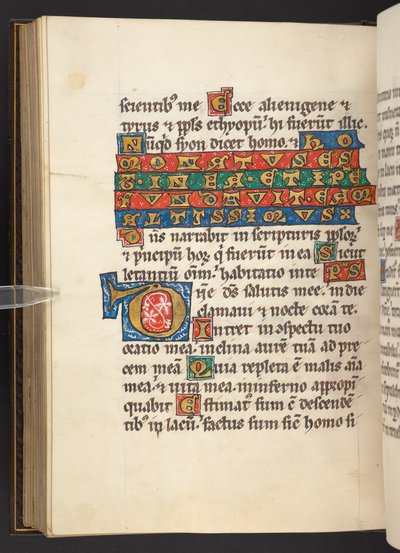 scientibꝰ me Ecce alienigene ⁊
tyrus ⁊ pp̄ls ethyopū hi fuerūt illic.
Nūqd syon dicet homo. ⁊ ho
MO NATVS EST
IN EA ⁊ IPE
FVNDAVIT EAM
ALTISSIMVS
Dn̄s narrabit in scripturis ppl̄orꝝ
⁊ pncipū horꝝ q̄ fuerūt in ea Sicut
letantiū om̄iꝝ habitatio in te PS
Dn̄e ds̄ salutis mee. in die
clamaui ⁊ nocte corā te.
Intret in ɔspectu tuo
oratio mea. inclina aurē tuā ad pre
cem meā Quia repleta ē malis aīa
mea. ⁊ uita mea. in inferno appropī
quabit Estimatꝰ sum cū descendē
tibꝰ in lacū. factus sum sic̄ homo si